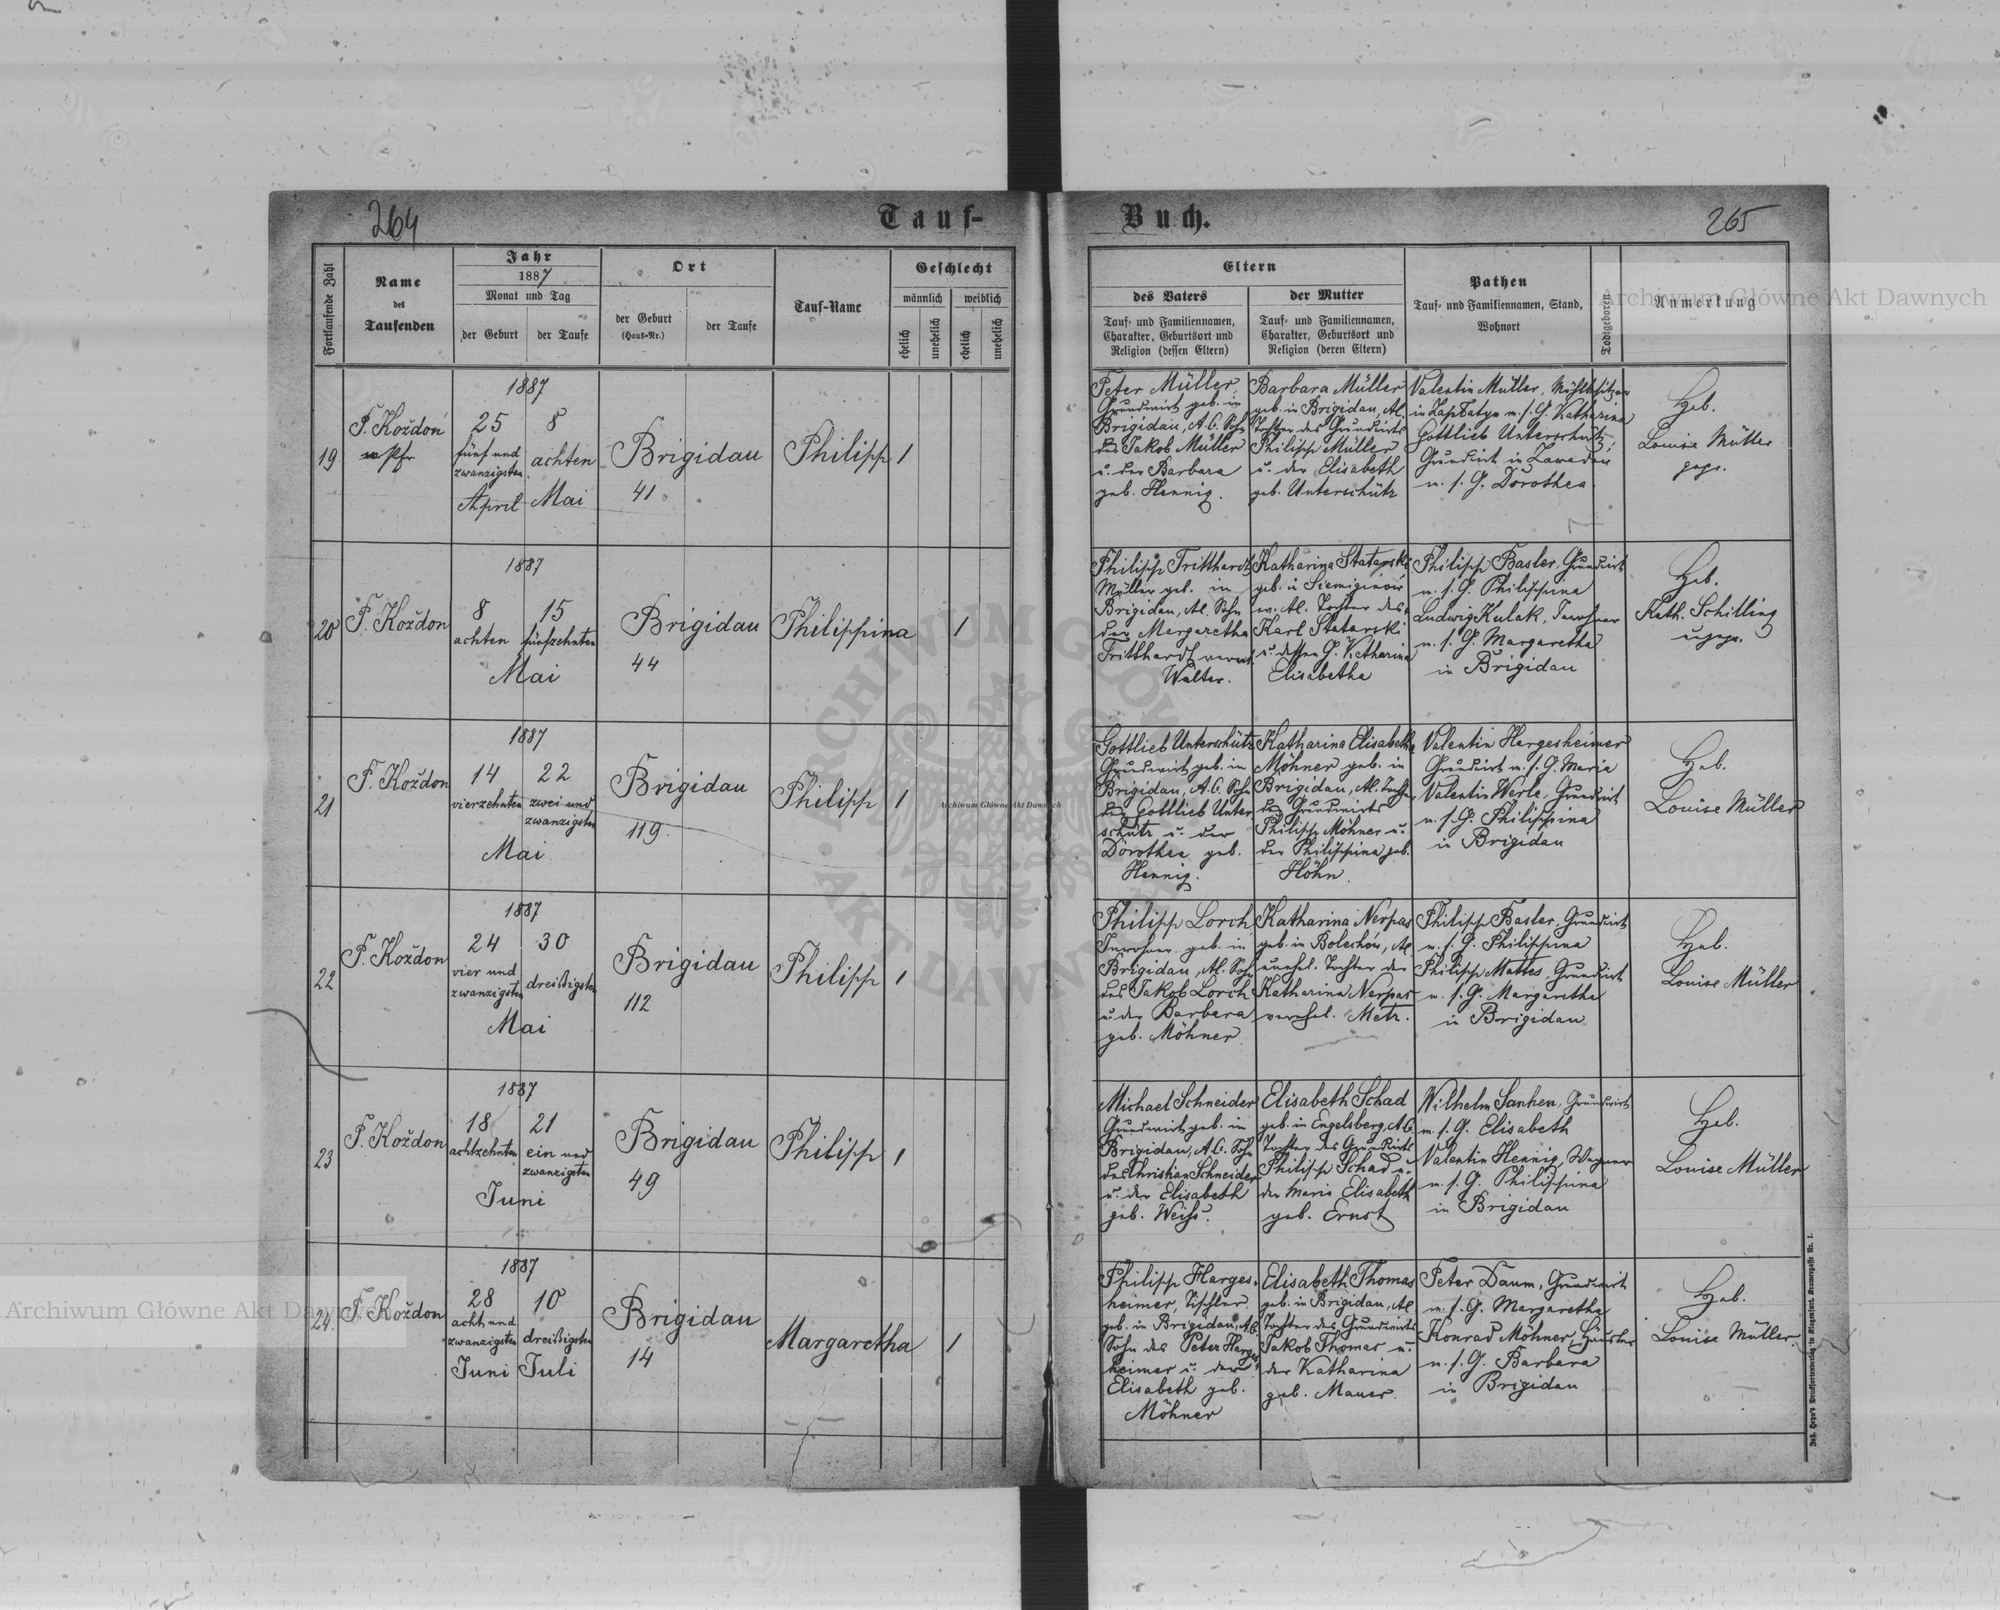 264
Tauf-
Fortlaufende Zahl
Name
des
Taufenden
Jahr
1887
Monat und Tag
der Geburt
der Taufe
Ort
der Geburt
(Haus-Nr.)
der Taufe
Tauf-Name
Geschlecht
männlich
weiblich
ehelich
unehelich
ehelich
unehelich
19
F. Koždoń
Pfr
1887
25
fünf und
zwanzigsten
April
8
achten
Mai
Brigidau
41
Philipp
1
20
F. Koždoń
1887
8
achten
15
fünfzehnten
Mai
Brigidau
44
Philippina
1
21
F. Koždoń
1887
14
vierzehnten
22
zwei und
zwanzigsten
Mai
Brigidau
119
Philipp
1
22
F. Koždoń
1887
24
vier und
zwanzigsten
30
dreißigsten
Mai
Brigidau
112
Philipp
1
23
F. Koždoń
1887
18
achtzehnten
21
ein und
zwanzigsten
Juni
Brigidau
49
Philipp
1
24.
F. Koždoń
1887
28
acht und
zwanzigsten
Juni
10
dreißigsten
Juli
Brigidau
14
Margaretha
1
Buch.
265
Eltern
des Vaters
Tauf- und Familiennamen,
Charakter, Geburtsort und
Religion (dessen Eltern)
der Mutter
Tauf- und Familiennamen,
Charakter, Geburtsort und
Religion (deren Eltern)
Pathen
Tauf- und Familiennamen, Stand,
Wohnort
Todtgeboren
Anmerkung
Peter Müller,
Grundwirt geb. in
Brigidau, A.C. Sohn
des Jakob Müller
u. der Barbara
geb. Hennig.
Barbara Müller
geb. in Brigidau, AC.
Tochter des Grundwirts
Philipp Müller
u. der Elisabeth
geb. Unterschütz
Valentin Müller, Mühlbesitzer
m. s. G. Katharina
Gottlieb Unterschütz,
Grundwirt in Zawadów
m. s. G. Dorothea
Heb.
Louise Müller
gepr.
Philipp Tritthardt
Müller geb. in
Brigidau, AC. Sohn
der Margaretha
Tritthardt
Walter.
Katharina Statarski
geb. in Siemiginów
ev. AC. Tochter des
Karl Statarski
u. dessen G. Katharina
Elisabetha
Philipp Basler, Grundwirt
m. s. G. Philippina
Ludwig Kulak, Inwohner
m. s. G. Margaretha
in Brigidau
Heb.
Kath. Schilling
ungepr.
Gottlieb Unterschütz
Grundwirt geb. in
Brigidau, A.C. Sohn
des Gottlieb Unter
schütz u. der
Dorothea geb.
Hennig.
Katharina Elisabeth
Möhner geb. in
Brigidau, AC. Tochter
des Grundwirts
Philipp Möhner u.
der Philippina geb.
Höhn.
Valentin Hargesheimer
Grundwirt m. s. G. Maria
Valentin Werle, Grundwirt
m. s. G. Philippina
in Brigidau
Heb.
Louise Müller
Philipp Lorch
Inwohner geb. in
Brigidau, AC. Sohn
des Jakob Lorch
u. der Barbara
geb. Möhner
Katharina Nerpas
geb. in Bolechów, AC
unehel. Tochter der
Katharina Nerpas
verehel. Metz.
Philipp Basler, Grundwirt
m. s. G. Philippina
Philipp Mattes, Grundwirt
m. s. G. Margaretha
in Brigidau
Heb.
Louise Müller
Michael Schneider
Grundwirt geb. in
Brigidau, A.C. Sohn
des Christian Schneider
u. der Elisabeth
geb. Weiß.
Elisabeth Schad
geb. in Engelsberg, A.C.
Tochter des Grundwirts
Philipp Schad u.
der Maria Elisabeth
geb. Ernst
Wilhelm Sanhen, Grundwirt
m. s. G. Elisabeth
Valentin Hennig, Wagner
m. s. G. Philippina
in Brigidau
Heb.
Louise Müller
Philipp Harges-
heimer, Tischler
geb. in Brigidau, AC.
Sohn des Peter Harges
heimer u. der
Elisabeth geb.
Möhner
Elisabeth Thomas
geb. in Brigidau, AC
Tochter des Grundwirts
Jakob Thomas u.
der Katharina
geb. Mauer.
Peter Daum, Grundwirt
m. s. G. Margaretha
Konrad Möhner, Häusler
m. s. G. Barbara
in Brigidau
Heb.
Louise Müller.
Archiwum Główne Akt Dawnych
Archiwum Główne Akt Dawnych
Archiwum Główne Akt Dawnych